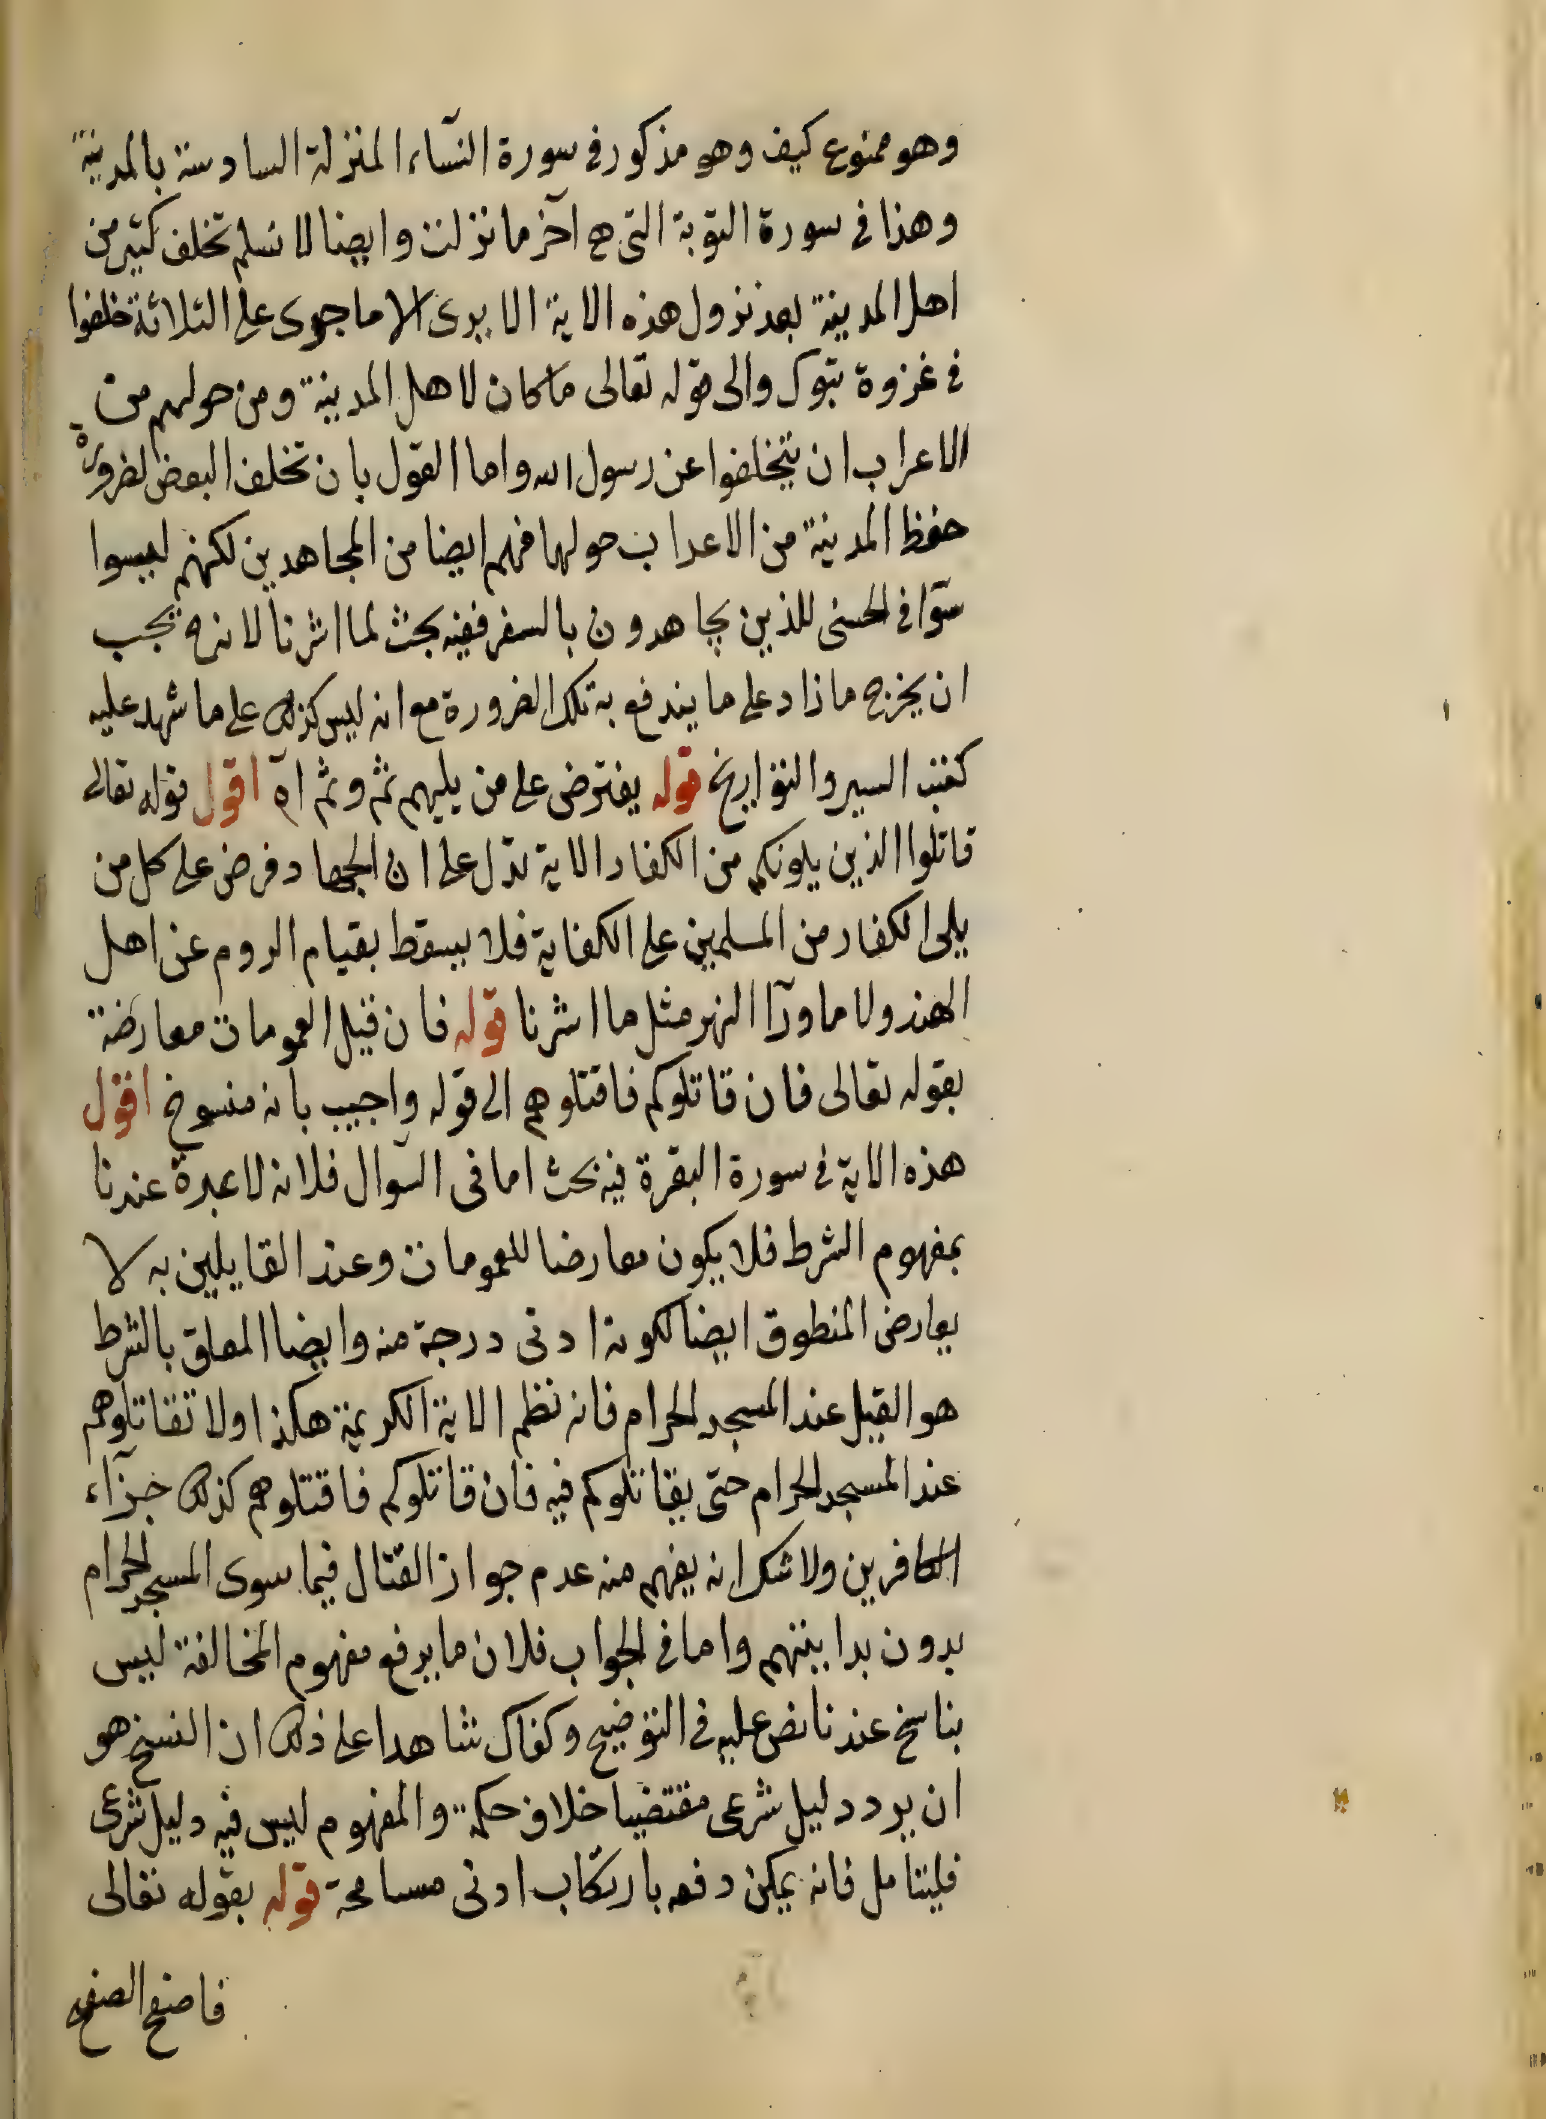 وهو ممنوع كيف وهو مذكور في سورة النسآء المنزلة السادسة بالمدينة
وهذا في سورة التوبة التي هي آخر ما نزلت وايضا لا نسلم تخلف كثير من
اهل المدينة بعد نزول هذه الاية الا يرى الا ما جرى على الثلاثة خلفوا
في غزوة تبوك والى قوله تعالى ما كان لاهل المدينة ومن حولهم من
الاعراب ان يتخلفوا عن رسول الله واما القول بان تخلف البعض لضرورة
حفظ المدينة من الاعداب حولها فهم ايضا من المجاهدين لكنهم ليسوا
سوآ في الحسنى للذين يجاهدون بالسفر ففيه بحث لما اشرنا لانه ح يجب
ان يخرج ما زاد على ما يندفع به تلك الضرورة مع انه ليس كذلك على ما شهد عليه
كتب السير والتواريخ قوله يفترض على من يليهم ثم وثم آه اقول قوله تعالى
قاتلوا الذين يلونكم من الكفار الاية تدل على ان الجهاد فرض على كل من
يلى الكفار من المسلمين على الكفاية فلا يسقط بقيام الروم عن اهل
الهند ولا ما ورآ النهر مثل ما اشرنا قوله فان قيل العمومات معارضة
بقوله تعالى فان قاتلوكم فاقتلوهم الى قوله واجيب بانه منسوخ اقول
هذه الاية في سورة البقرة فيه بحث اما في السوآل فلانه لا عبرة عندنا
بمفهوم الشرط فلا يكون معارضا للعمومات وعند القايلين به لا
يعارض المنطوق ايضا لكونه ادنى درجة منه وايضا المعلق بالشرط
هو القيل عند المسجد الحرام فانه نظم الاية الكريمة هكذا ولا تقاتلوهم
عند المسجد الحرام حتى يقاتلوكم فيه فان قاتلوكم فاقتلوهم كذلك جزآء
الكافرين ولا شك انه يفهم منه عدم جواز القتال فيما سوى المسجد الحرام
بدون بدايتهم واما في الجواب فلان ما يرفع مفهوم المخالفة ليس
بناسخ عندنا نص عليه في التوضيح وكفاك شاهدا على ذلك ان النسخ هو
ان يرد دليل شرعى مقتضيا خلاف حكمه والمفهوم ليس فيه دليل شرعى
فليتامل فانه يمكن دفعه بارتكاب ادنى مسامحة قوله بقوله تعالى
فاصفح الصفح